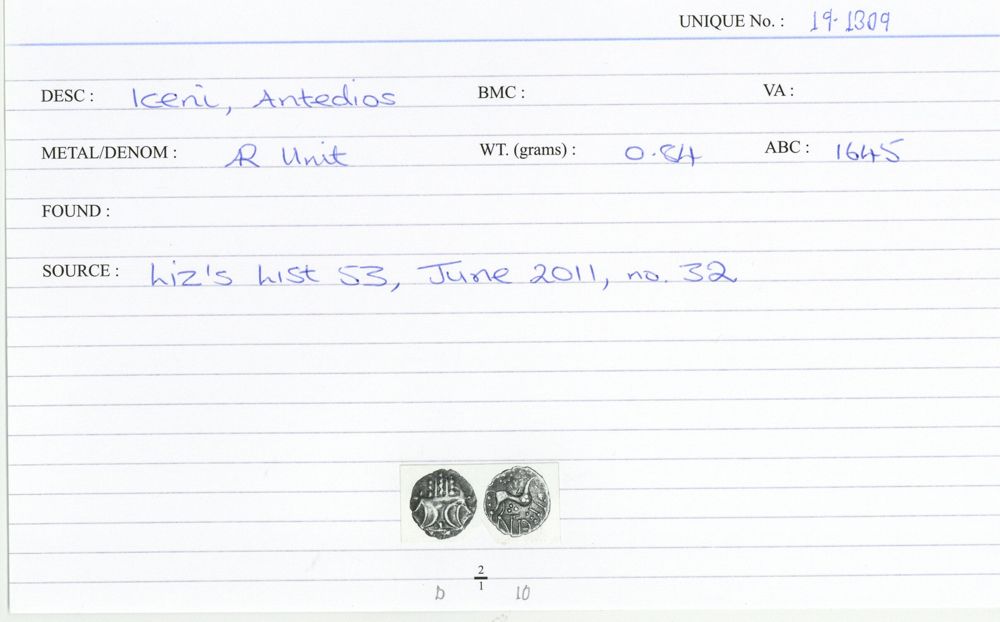 UNIQUE No. : 19-1309
DESC : Iceni, Antedios BMC : VA :
METAL/DENOM : AR Unit WT. (grams) : 0.84 ABC : 1645
FOUND :
SOURCE : Liz's List 53, June 2011, no. 32
2
1
b 10